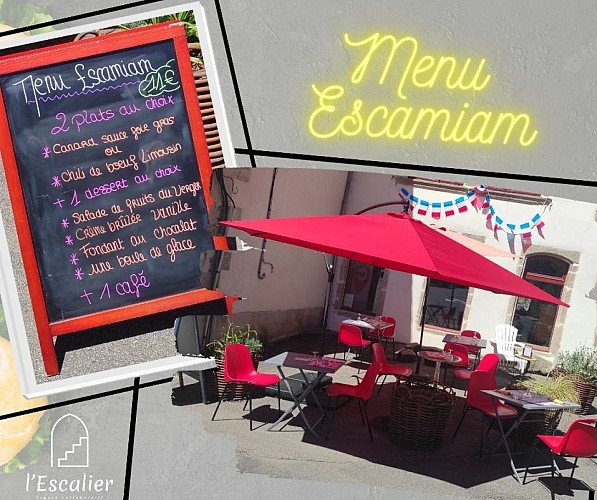 Menu Escamiam
11€
2 plats au choix
* Canard sauce foie gras
ou
* Chili de boeuf Limousin
+ 1 dessert au choix
* Salade de fruits du Verger
* Crème brûlée Vanille
* Fondant au chocolat
* une boule de glace
+ 1 café
Menu
Escamiam
l'Escalier
Espace collaboratif